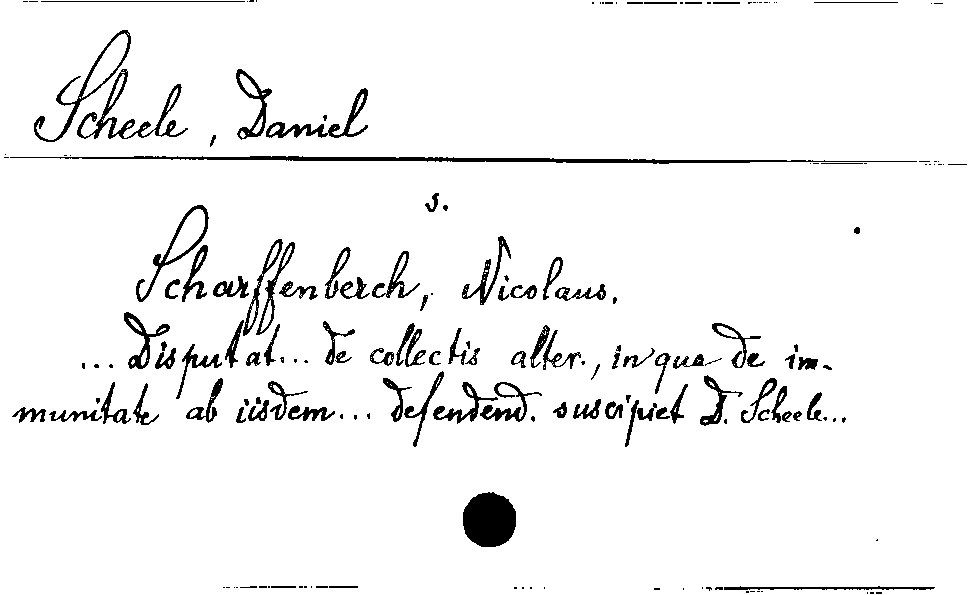 Scheele, Daniel
s.
Scharffenberch, Nicolaus.
... Disputat... de collectis alter., in qua de im-
munitate ab iisdem... defendend. suscipiet D. Scheele...